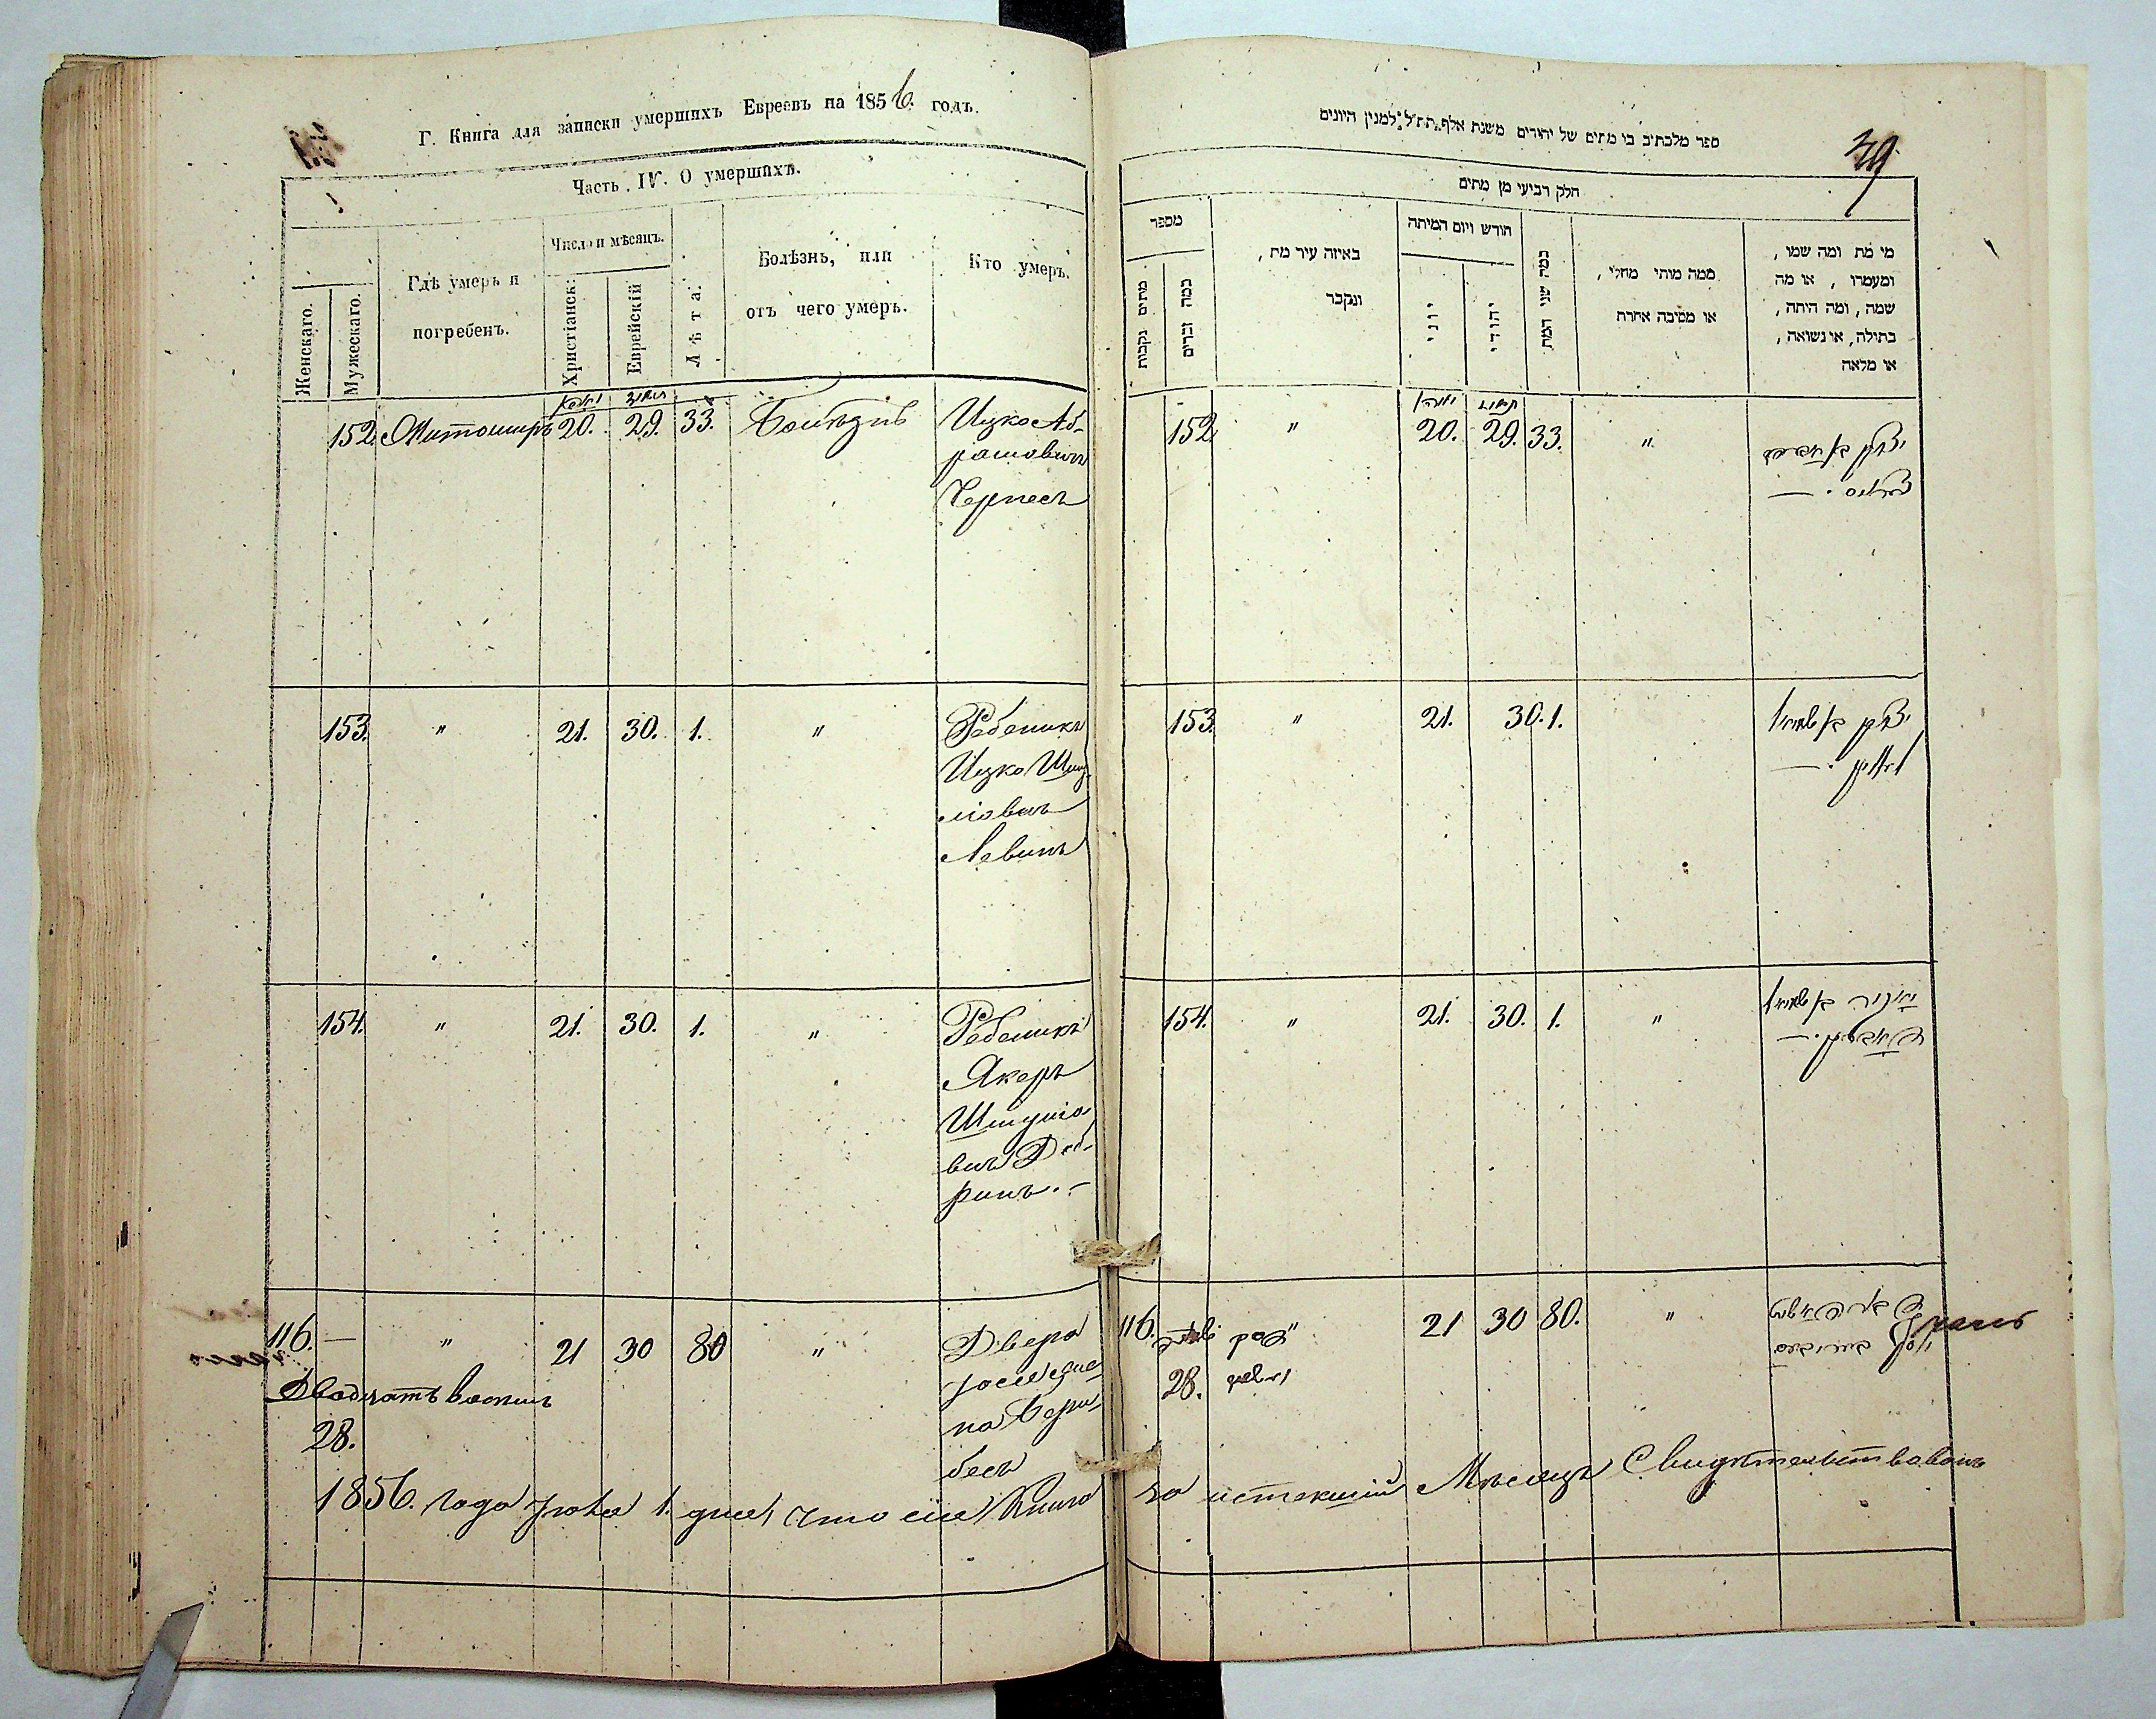 Г. Книга для записки умершихъ Евреевъ на 1856. годъ.
Часть IV. О умершихъ.
Женскаго.
Мужескаго.
Гдѣ умеръ и
погребенъ.
Число и мѣсяцъ.
Христіанск:
Еврейскій
Лѣта:
Болѣзнь, или
отъ чего умеръ.
Кто умеръ.
152. Житомиръ 20. 29. 33. Болѣзнь Ицко Аб-
рамовичъ
Чернесъ
153. " 21. 30. 1. " Ребеникъ
Ицко Шму
ліовичъ
Левинъ
154. " 21. 30. 1. " Ребеникъ
Якеръ
Шмуліо
вичъ
ринъ. –
116. — " 21 30 80 " Двера
Двадцать восемь
28.
бесъ
1856. года 1. дня, что сія Книга
ספר מלכתיב בו מתים של יהודים משנת אלף תת״ל למנין היונים
39
חלק רביעי מן מתים
מספר
מתים נקבות
כמה זכרים
באיזה עיר מת,
ונקבר
חודש ויום המיתה
יוני
יהודי
כמה שני המת
ממה מותי מחלי,
או מסיבה אחרת
מי מת ומה שמו,
ומעמדו, או מה
שמה, ומה היתה,
בתולה, או נשואה,
או מלאה
152 " 20. 29. 33. " יצחק בן אברהם
153. " 21. 30. 1. יצחק בן שמואל
לעווין. —
154. " 21. 30. 1. " בן שמואל
116. 21 30 80. "
28.
за истекшій Мѣсяцъ Свидѣтельствованъ